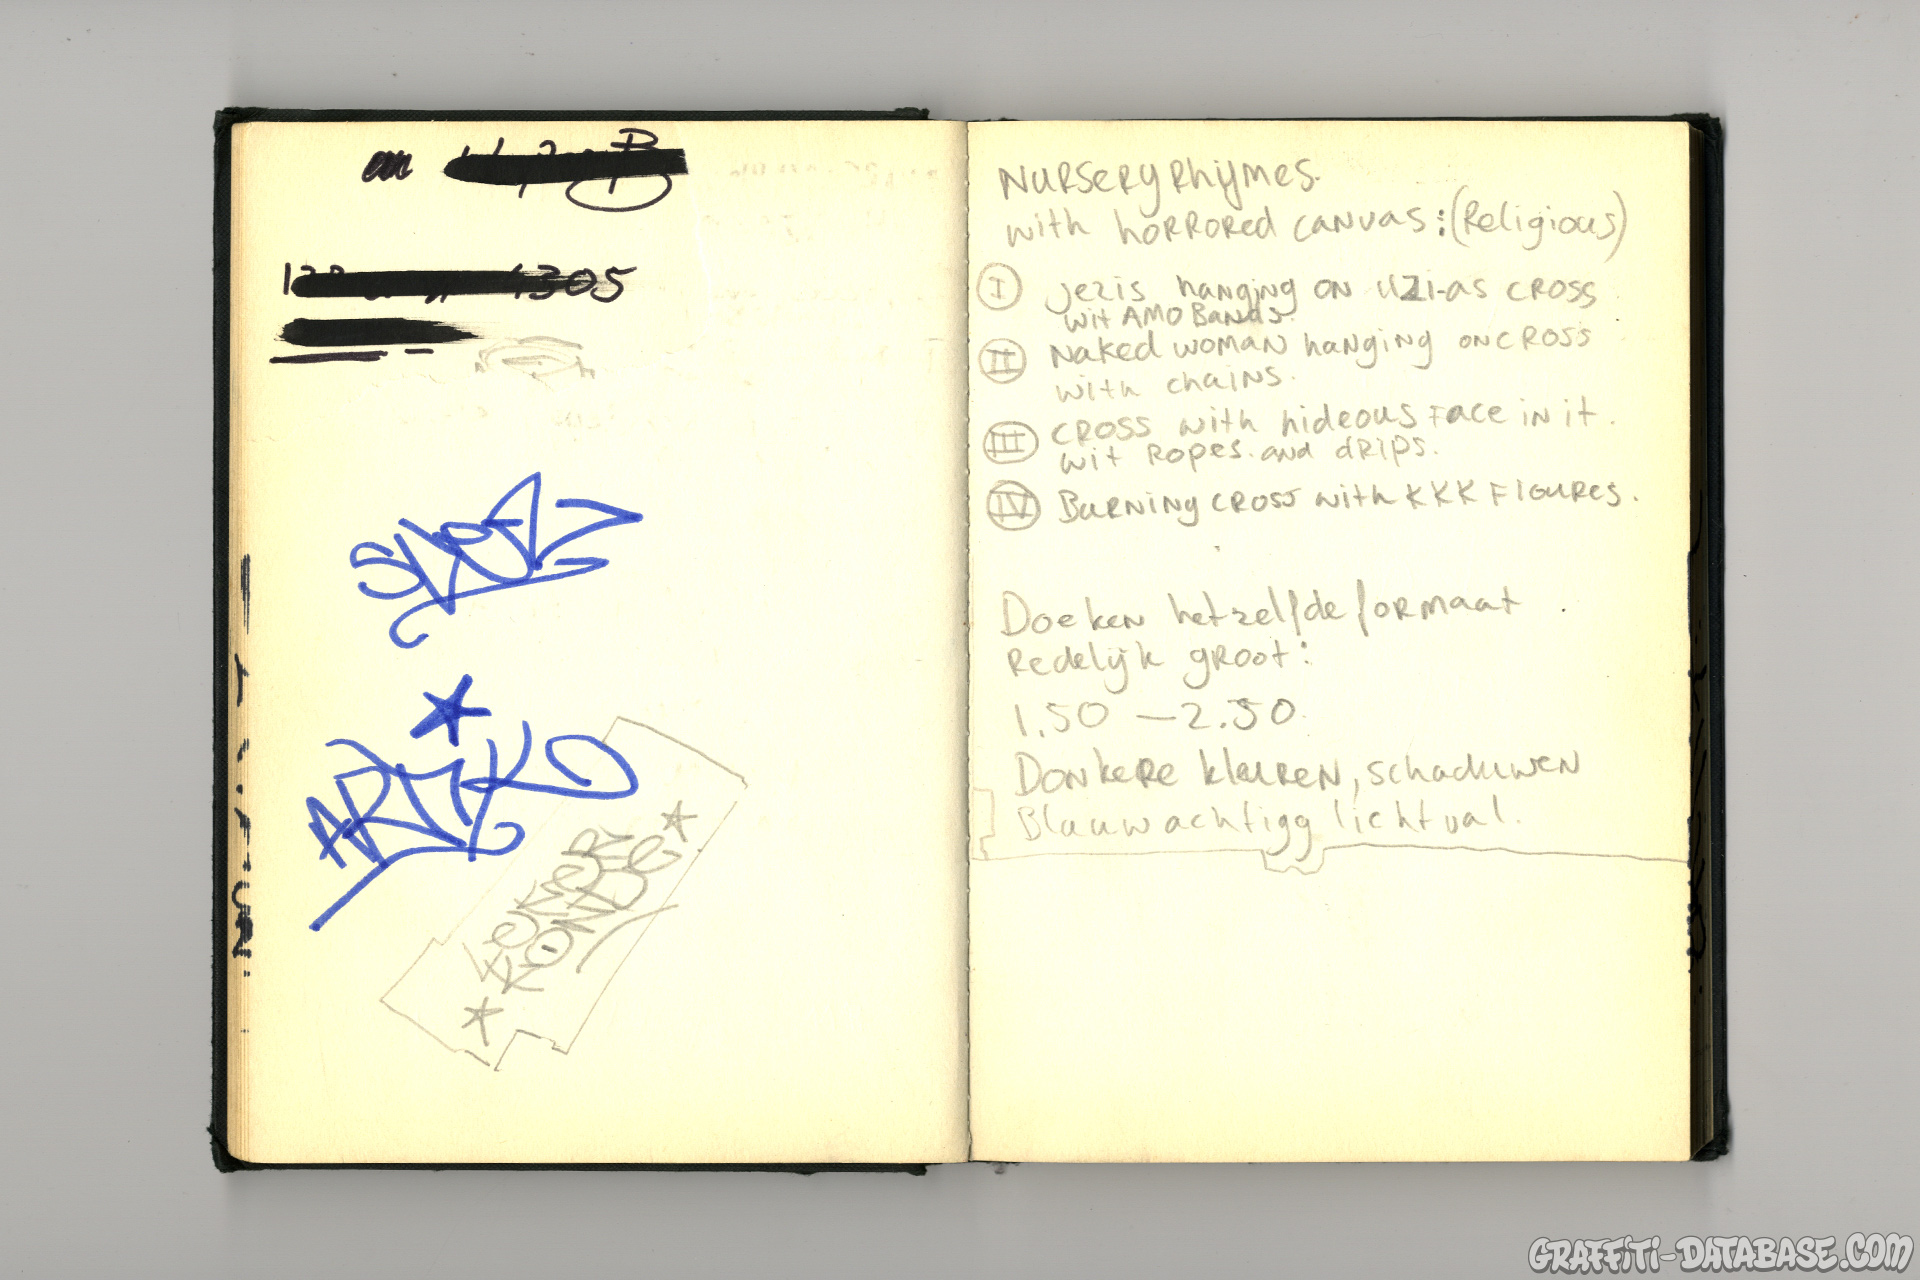 en
305
ARTIK
LEKKER
KONTDE
NURSERYRhijmes.
with HORRORed CANVAS: (Religious)
I jezis hanging ON UZI-AS CROSS
wit AMO BANds.
II Naked WOMAN hanging ON CROSS
with chaiNs.
III CROSS with hideous FACE iN it.
wit ROPES. AND dRIPS.
IV BURNiNg CROSS with KKK FIGURES.
Doeken hetzelfde formaat
Redelijk gROOT:
1.50 — 2.50.
DONkeRe kleuREN, schaduwen
Blauwachtigg lichtval.
GRAFFITI-DATABASE.COM